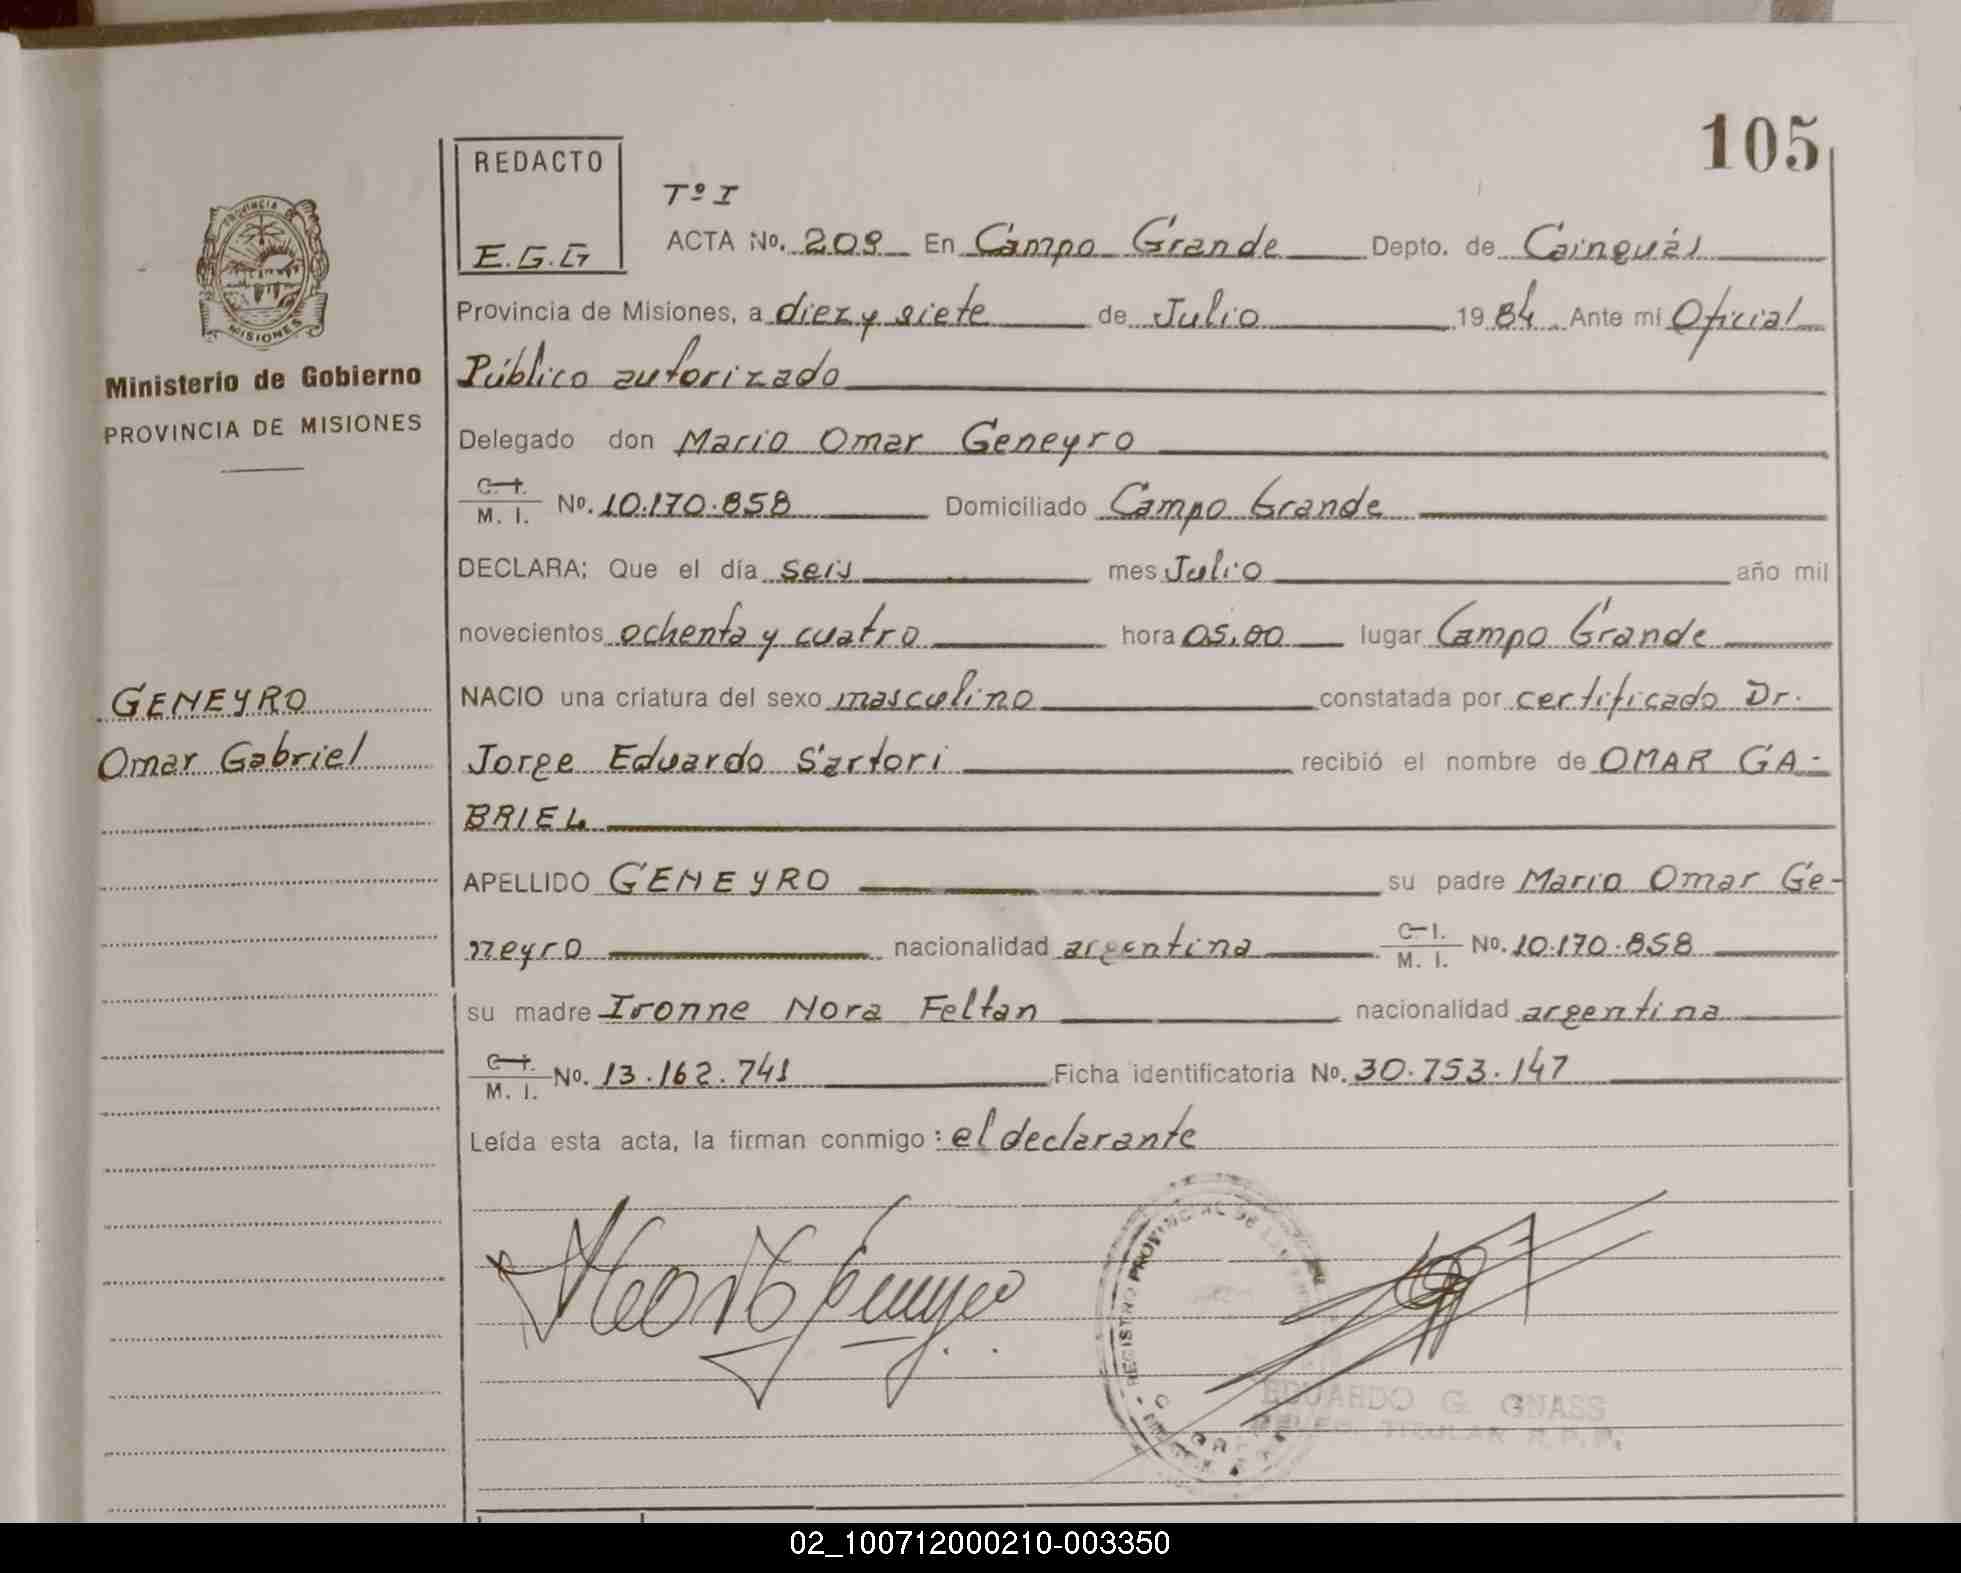 105
REDACTO
E.G.G
Tº I
ACTA No. 209 En Campo Grande Depto. de Cainguás
Provincia de Misiones, a diez y siete de Julio 1984 Ante mi Oficial
Público autorizado
Delegado don Mario Omar Geneyro
C. I. M. I. No. 10.170.858 Domiciliado Campo Grande
DECLARA: Que el día seis mes Julio año mil
novecientos ochenta y cuatro hora 05,00 lugar Campo Grande
NACIO una criatura del sexo masculino constatada por certificado Dr.
Jorge Eduardo Sartori recibió el nombre de OMAR GA-
BRIEL
APELLIDO GENEYRO su padre Mario Omar Ge-
neyro nacionalidad argentina C. I. M. I. No. 10.170.858
su madre Ivonne Nora Feltan nacionalidad argentina
C. I. M. I. No. 13.162.741 Ficha identificatoria No. 30.753.147
Leída esta acta, la firman conmigo: el declarante
PROVINCIA DE
MISIONES
Ministerio de Gobierno
PROVINCIA DE MISIONES
GENEYRO
Omar Gabriel
REGISTRO PROVINCIAL DE
EDUARDO G. GNASS
TITULAR R.P.P.
02_100712000210-003350